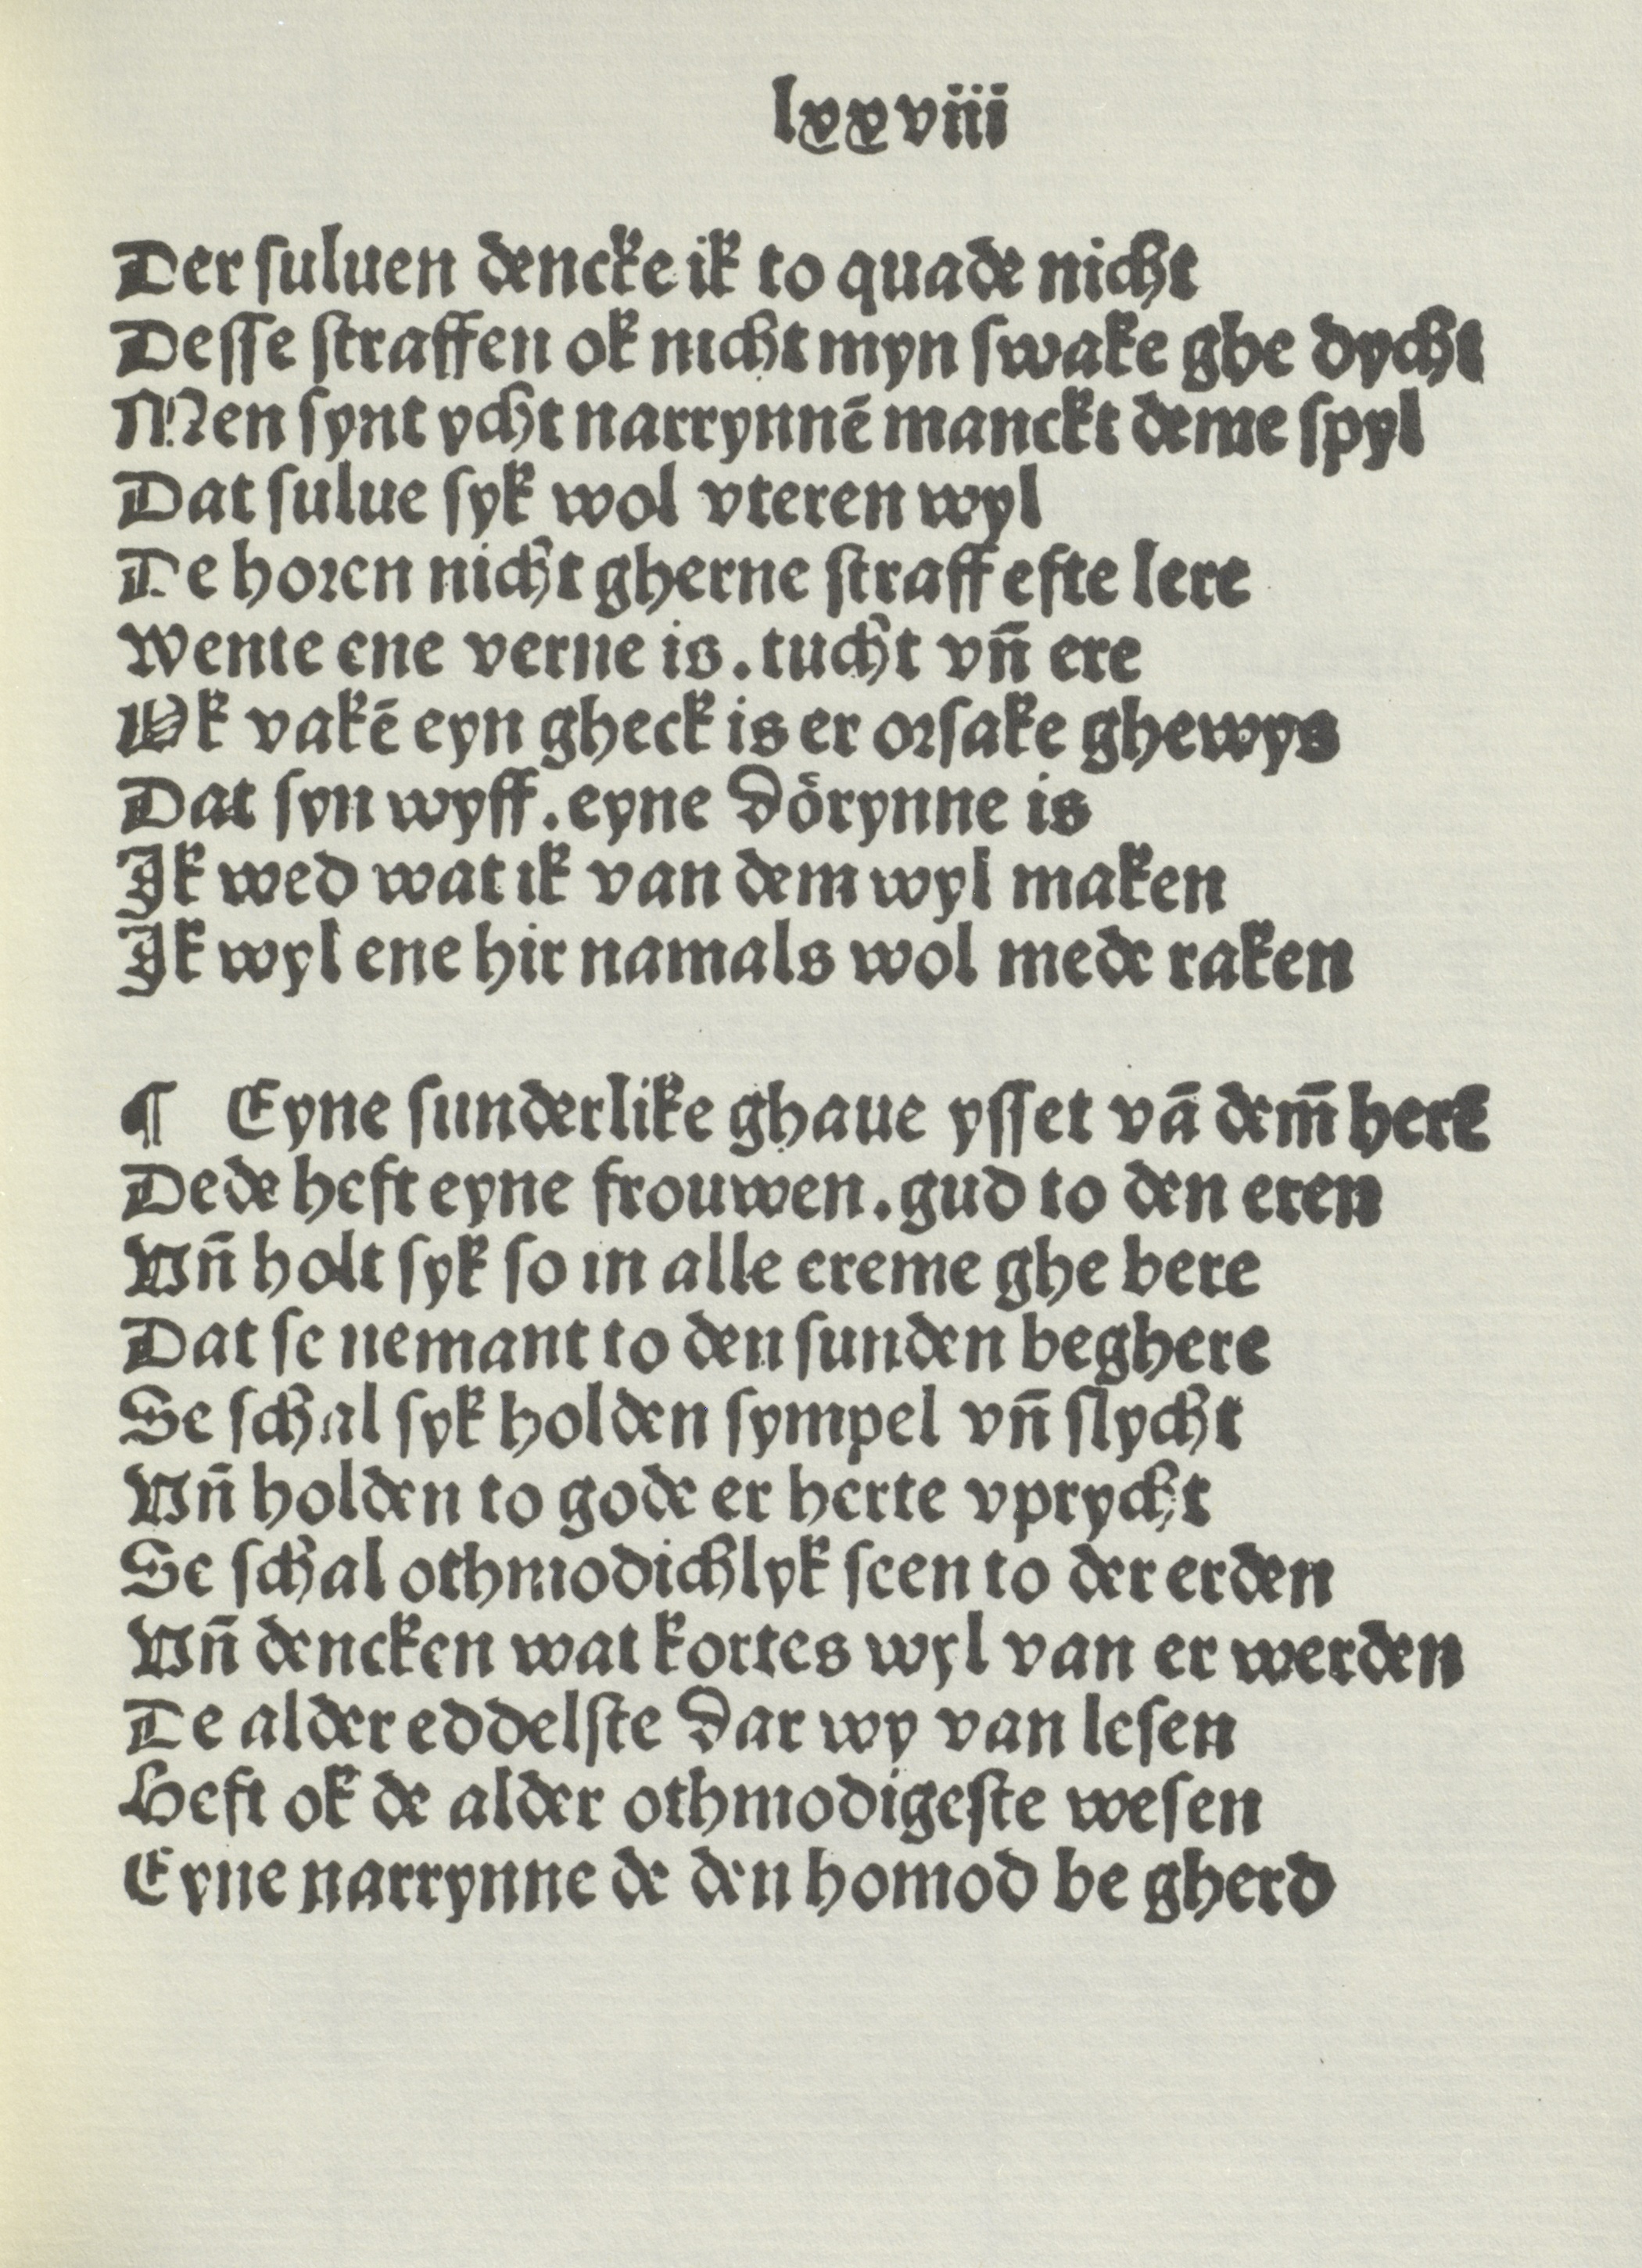 lxxviii
Der ſuluen dencke ik to quade nicht
Deſſe ſtraffen ok nicht myn ſwake ghe dycht
Men ſynt ycht narrynnē manckt deme ſpyl
Dat ſulue ſyk wol vteren wyl
De horen nicht gherne ſtraff efte lere
Wente ene verne is. tucht vn̄ ere
Ok vakē eyn gheck is er orſake ghewys
Dat ſyn wyff. eyne doͤrynne is
Ik wed wat ik van dem wyl maken
Ik wyl ene hir namals wol mede raken
¶ Eyne ſunderlike ghaue yſſet vā dem̄ herē
Dede heft eyne frouwen. gud to den eren
Vn̄ holt ſyk ſo in alle ereme ghe bere
Dat ſe nemant to den ſunden beghere
Se ſchal ſyk holden ſympel vn̄ ſlycht
Vn̄ holden to gode er herte vprycht
Se ſchal othmodichlyk ſeen to der erden
Vn̄ dencken wat kortes wyl van er werden
De alder eddelſte dar wy van leſen
Heft ok de alder othmodigeſte weſen
Eyne narrynne de den homod be gherd